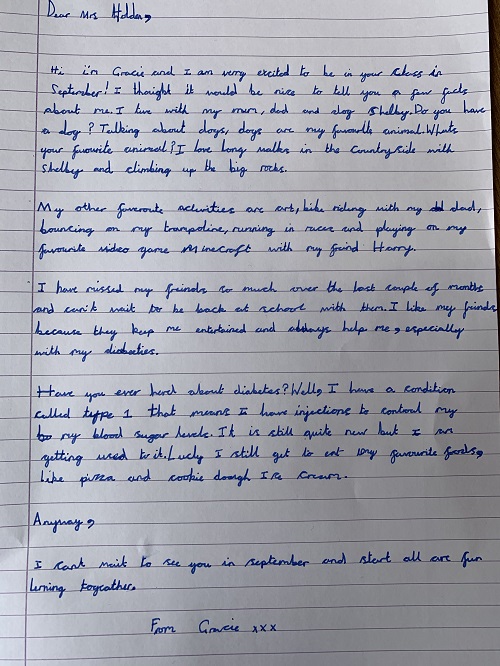 Dear Mrs Holden,
Hi i'm Gracie and I am verry excited to be in your class in
September! I thought it would be nice to tell you a few facts
about me. I live with my mum, dad and dog Shelby. Do you have
a dog? Talking about dogs, dogs are my favourite animal. Whats
your favourite animal? I love long walks in the Countryside with
Shelby and climbing up the big rocks.
My other faveroute activities are art, bike riding with my dad,
bouncing on my trampoline, running in races and playing on my
favourite video game Minecraft with my freind Harry.
I have missed my freinds so much over the last couple of months
and can't wait to be back at school with them. I like my freinds
because they keep me entertained and always help me, especially
with my diabeties.
Have you ever herd about diabetes? Well, I have a condition
called type 1 that means I have injections to control my
my blood sugar levels. It is still quite new but I am
getting used to it. Lucly I still get to eat my favourite foods,
like pizza and cookie dough Ice Cream.
Anyway,
I cant wait to see you in september and start all are fun
lerning togeather.
From Gracie xxx